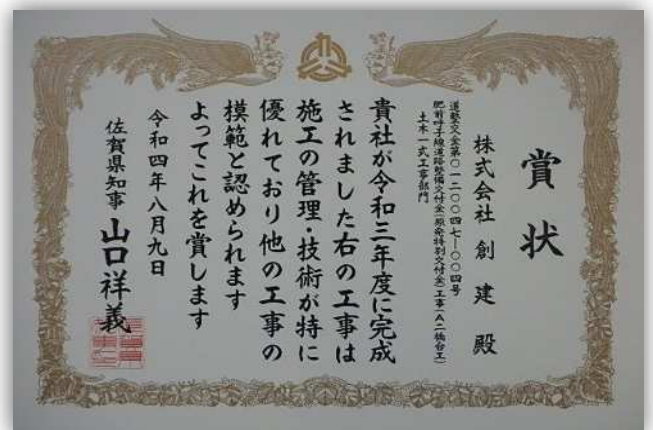 賞状
株式会社 創建 殿
道整交金第〇一二〇〇四七ー〇〇四号
肥前呼子線道路整備交付金(原発特別交付金)工事(A二橋台工)
土木一式工事部門
貴社が令和三年度に完成
されました右の工事は
施工の管理・技術が特に
優れており他の工事の
模範と認められます
よってこれを賞します
令和四年八月九日
佐賀県知事 山口祥義